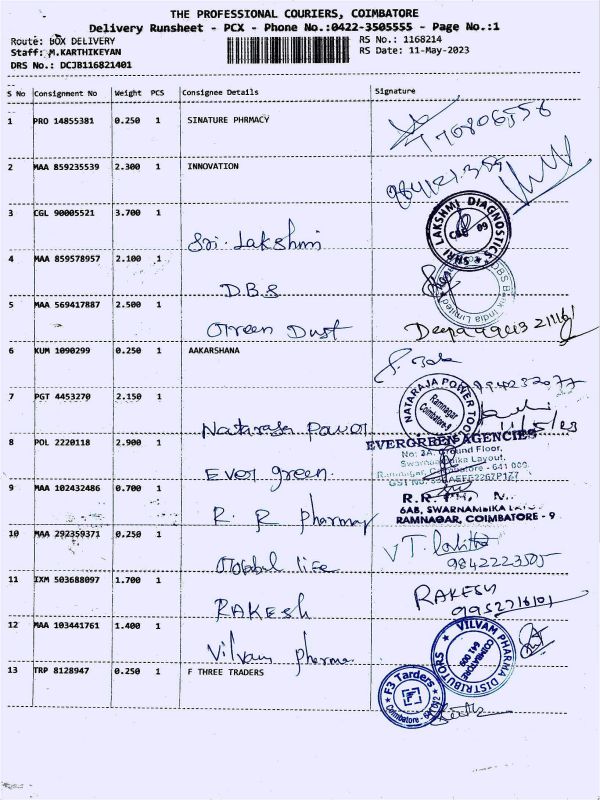 THE PROFESSIONAL COURIERS, COIMBATORE
Delivery Runsheet - PCX - Phone No.:0422-3505555 - Page No.:1
Route: BOX DELIVERY RS No.: 1168214
Staff: M.KARTHIKEYAN RS Date: 11-May-2023
DRS No.: DCJB116821401
S No Consignment No Weight PCS Consignee Details Signature
1 PRO 14855381 0.250 1 SINATURE PHRMACY
2 MAA 859235539 2.300 1 INNOVATION
3 CGL 90005521 3.700 1 Sri. Lakshmi
SHRI LAKSHMI DIAGNOSTICS
4 MAA 859578957 2.100 1 D.B.S
DBS Bank India Limited
5 MAA 569417887 2.500 1 Green Dust Deepa
6 KUM 1090299 0.250 1 AAKARSHANA
7 PGT 4453270 2.150 1 Nataraja Power
NATARAJA POWER TOOL
Ramnagar
Coimbatore-9
11/5/23
8 POL 2220118 2.900 1 Ever green.
EVERGREEN AGENCIES
No: 2A, Ground Floor,
Layout,
Coimbatore - 641 009.
9 MAA 102432486 0.700 1 R. R pharmacy
R.R
6AB, SWARNAMBIKA
RAMNAGAR, COIMBATORE - 9
10 MAA 292359371 0.250 1 Global life
9842223505
11 IXM 503688097 1.700 1 RAKESH RAKESH
9952716101
12 MAA 103441761 1.400 1 Vilvam pharma
VILVAM PHARMA DISTRIBUTORS
COIMBATORE
641 009
13 TRP 8128947 0.250 1 F THREE TRADERS
F3 Tarders
Coimbatore - 641 012